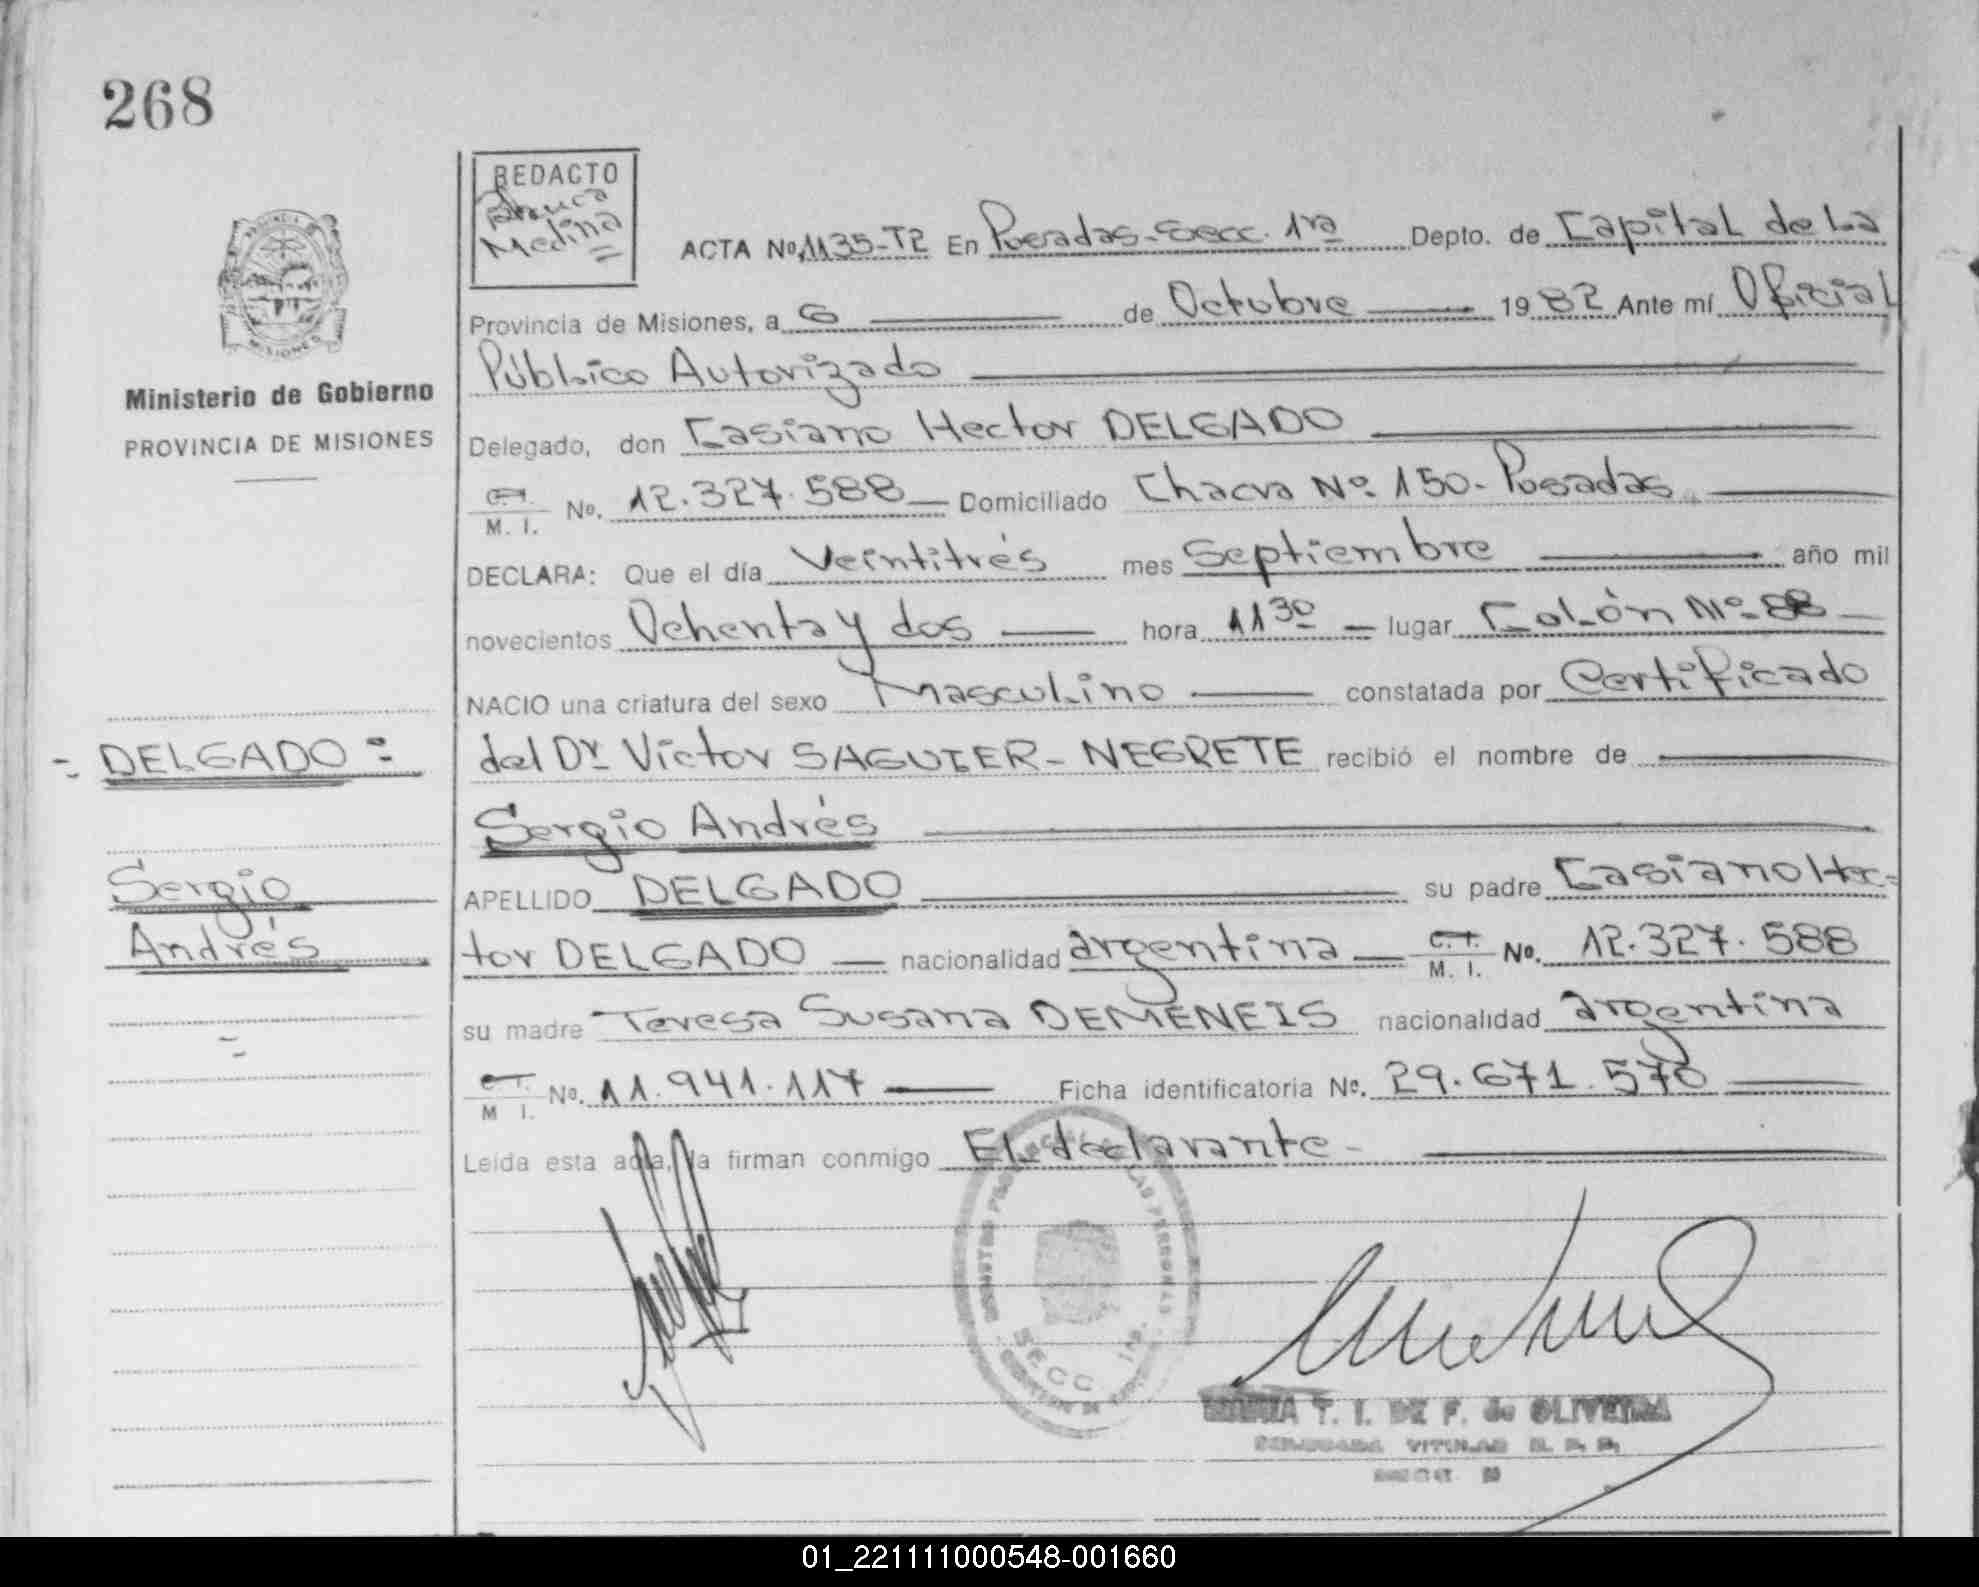 268
REDACTO
Blanca
Medina
ACTA No. 1135-T2 En Posadas-Secc. 1ra Depto. de Capital de La
Provincia de Misiones, a 6 de Octubre 1982 Ante mí Oficial
Público Autorizado
Ministerio de Gobierno
PROVINCIA DE MISIONES
Delegado, don Casiano Hector DELGADO
C.I. M. I. No. 12.327.588 Domiciliado Chacra Nº 150- Posadas
DECLARA: Que el día Veintitrés mes Septiembre año mil
novecientos Ochenta y dos hora 11 30 lugar Colón Nº 88
NACIO una criatura del sexo Masculino constatada por Certificado
- DELGADO =
del Dr Víctor SAGUIER- NEGRETE recibió el nombre de
Sergio Andrés
Sergio
Andrés
APELLIDO DELGADO su padre Casiano Hec-
tor DELGADO nacionalidad argentina C. I. M. I. No. 12.327.588
su madre Teresa Susana DEMENEIS nacionalidad argentina
C. I. M I. No. 11.941.117 Ficha identificatoria No. 29.671.570
Leída esta acta, la firman conmigo El declarante-
SECC 1ra.
MARIA T. I. DE F. de OLIVEIRA
01_221111000548-001660